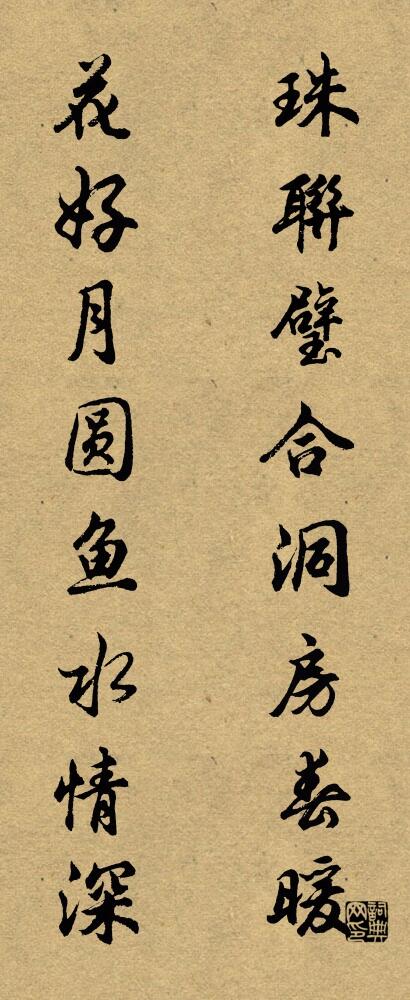 珠聯璧合洞房春暖
花好月圆鱼水情深
詞典网印